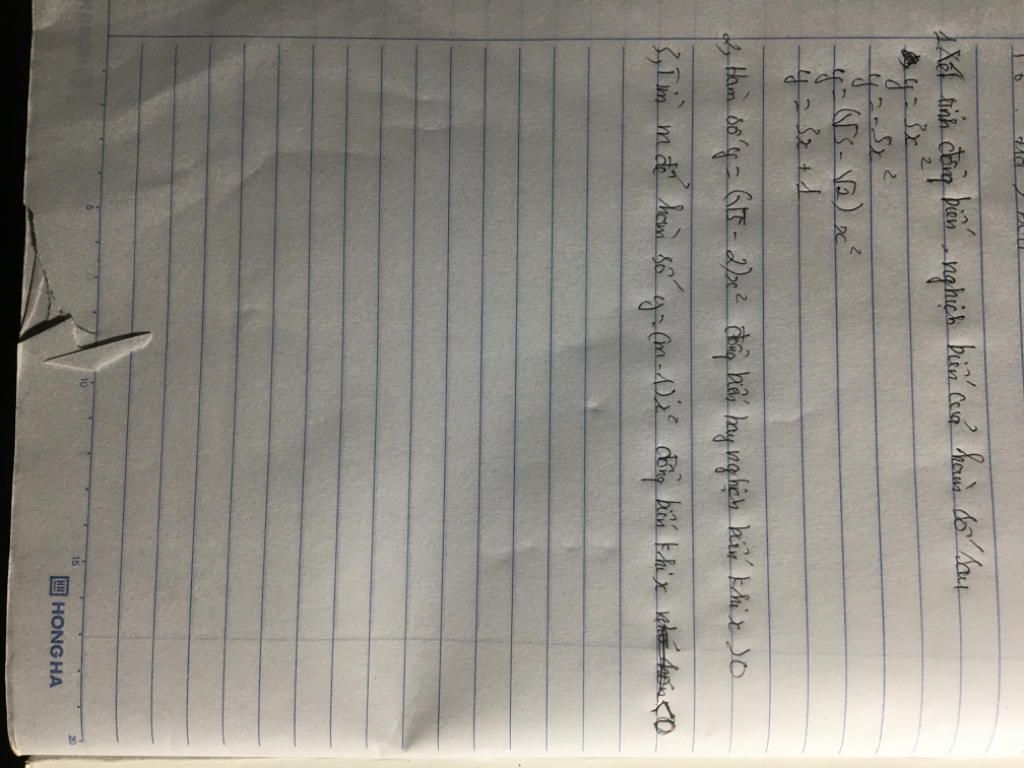 1, Xét tính đồng biến, nghịch biến của hàm số sau
y = 3x²
y = -5x²
y = (√3 - √2) x²
y = 3x + 1
2, Hàm số y = (√5 - 2)x² đồng biến hay nghịch biến khi x > 0
3, Tìm m để hàm số y = (m - 1)x² đồng biến khi x < 0
5
10
15
20
HONG HA